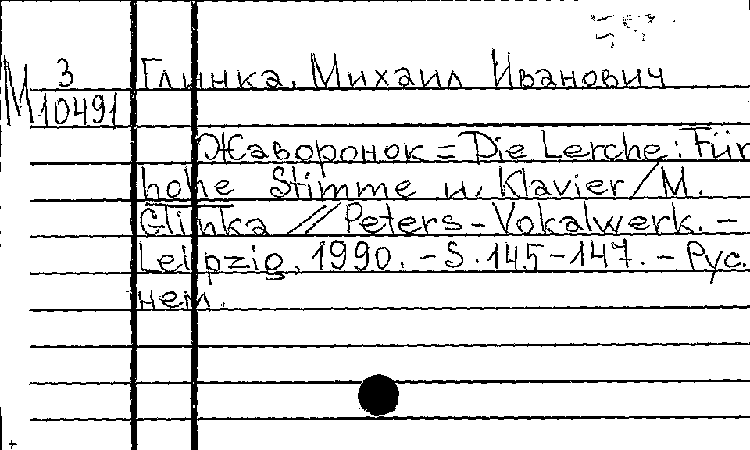 М 3
10491
Глинка, Михаил Иванович
Жаворонок = Die Lerche: Für
hohe Stimme u. Klavier / M.
Glinka // Peters - Vokalwerk. –
Leipzig, 1990. – S. 145–147. – Рус.
нем.